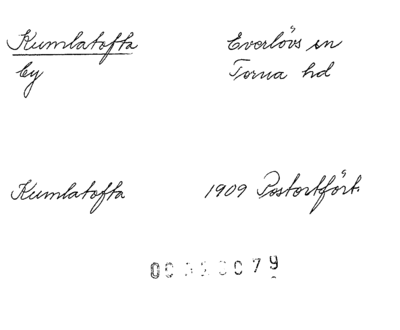 Kumlatofta Everlövs sn
by Torna hd
Kumlatofta 1909 Postortfört.